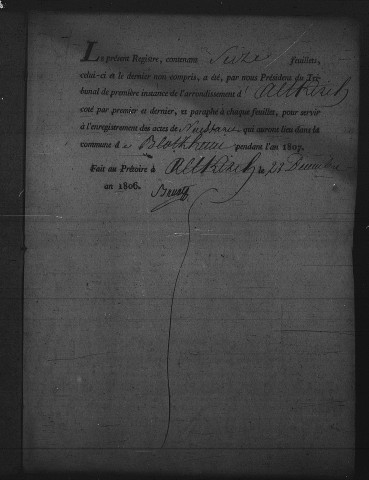 Le présent Registre, contenant Seize feuillets,
celui-ci et le dernier non compris, a été, par nous Président du Tri-
bunal de première instance de l'arrondissement d'Altkirch
coté par premier et dernier, et paraphé à chaque feuillet, pour servir
à l'enregistrement des actes de Naissance qui auront lieu dans la
commune d e Blotzheim pendant l'an 1807.
Fait au Prétoire à Altkirch le 28 Décembre
an 1806.